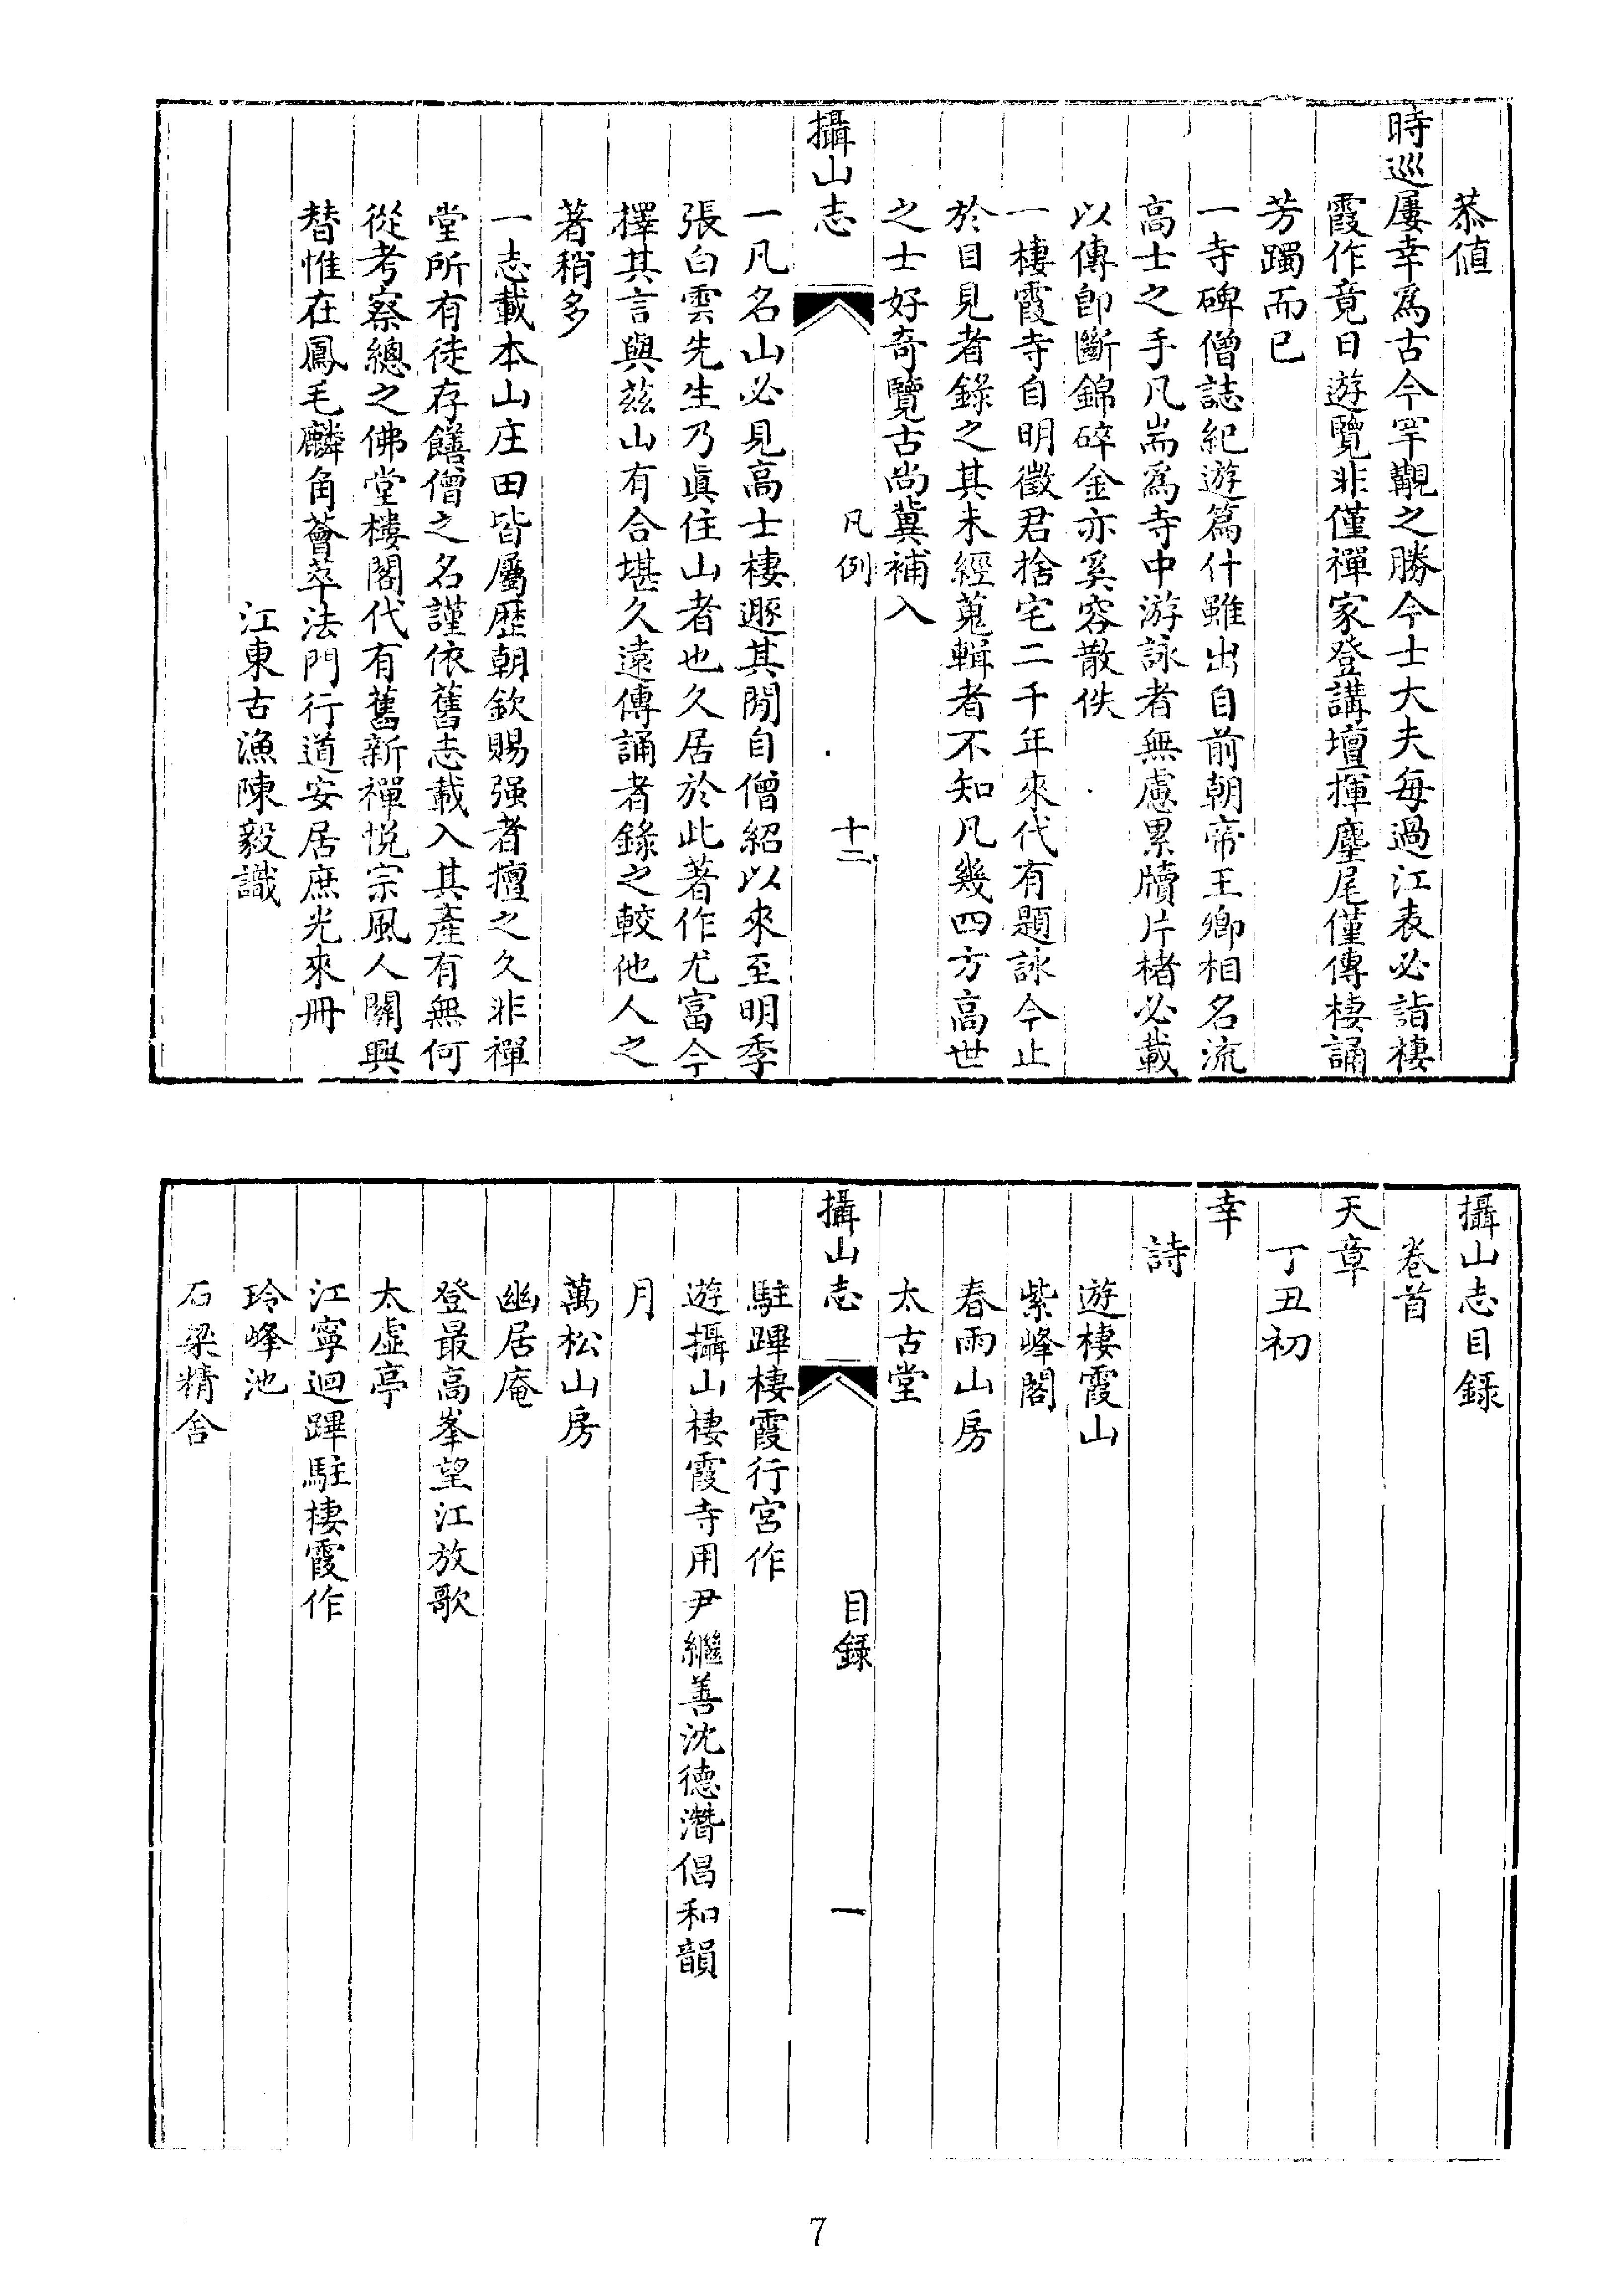 恭値
時巡屢幸爲古今罕覯之勝今士大夫每過江表必詣棲
霞作竟日遊覽非僅禪家登講壇揮麈尾僅傳棲誦
芳躅而已
一寺碑僧誌紀遊篇什雖出自前朝帝王卿相名流
高士之手凡耑爲寺中游詠者無慮累牘片楮必載
以傳卽斷錦碎金亦奚容散佚
一棲霞寺自明徵君捨宅二千年來代有題詠今止
於目見者錄之其未經蒐輯者不知凡幾四方高世
之士好奇覽古尚冀補入
攝山志
凡例
十二
一凡名山必見高士棲遯其閒自僧紹以來至明季
張白雲先生乃眞住山者也久居於此著作尤富今
擇其言與茲山有合堪久遠傳誦者錄之較他人之
著稍多
一志載本山庄田皆屬歷朝欽賜强者擅之久非禪
堂所有徒存饍僧之名謹依舊志載入其產有無何
從考察總之佛堂樓閣代有舊新禪悅宗風人關興
替惟在鳳毛麟角薈萃法門行道安居庶光來冊
江東古漁陳毅識
攝山志目録
卷首
天章
丁丑初
幸
詩
遊棲霞山
紫峰閣
春雨山房
太古堂
攝山志
目録
一
駐蹕棲霞行宮作
遊攝山棲霞寺用尹繼善沈德潛倡和韻
月
萬松山房
幽居庵
登最高峯望江放歌
太虛亭
江寧迴蹕駐棲霞作
玲峰池
石梁精舍
7